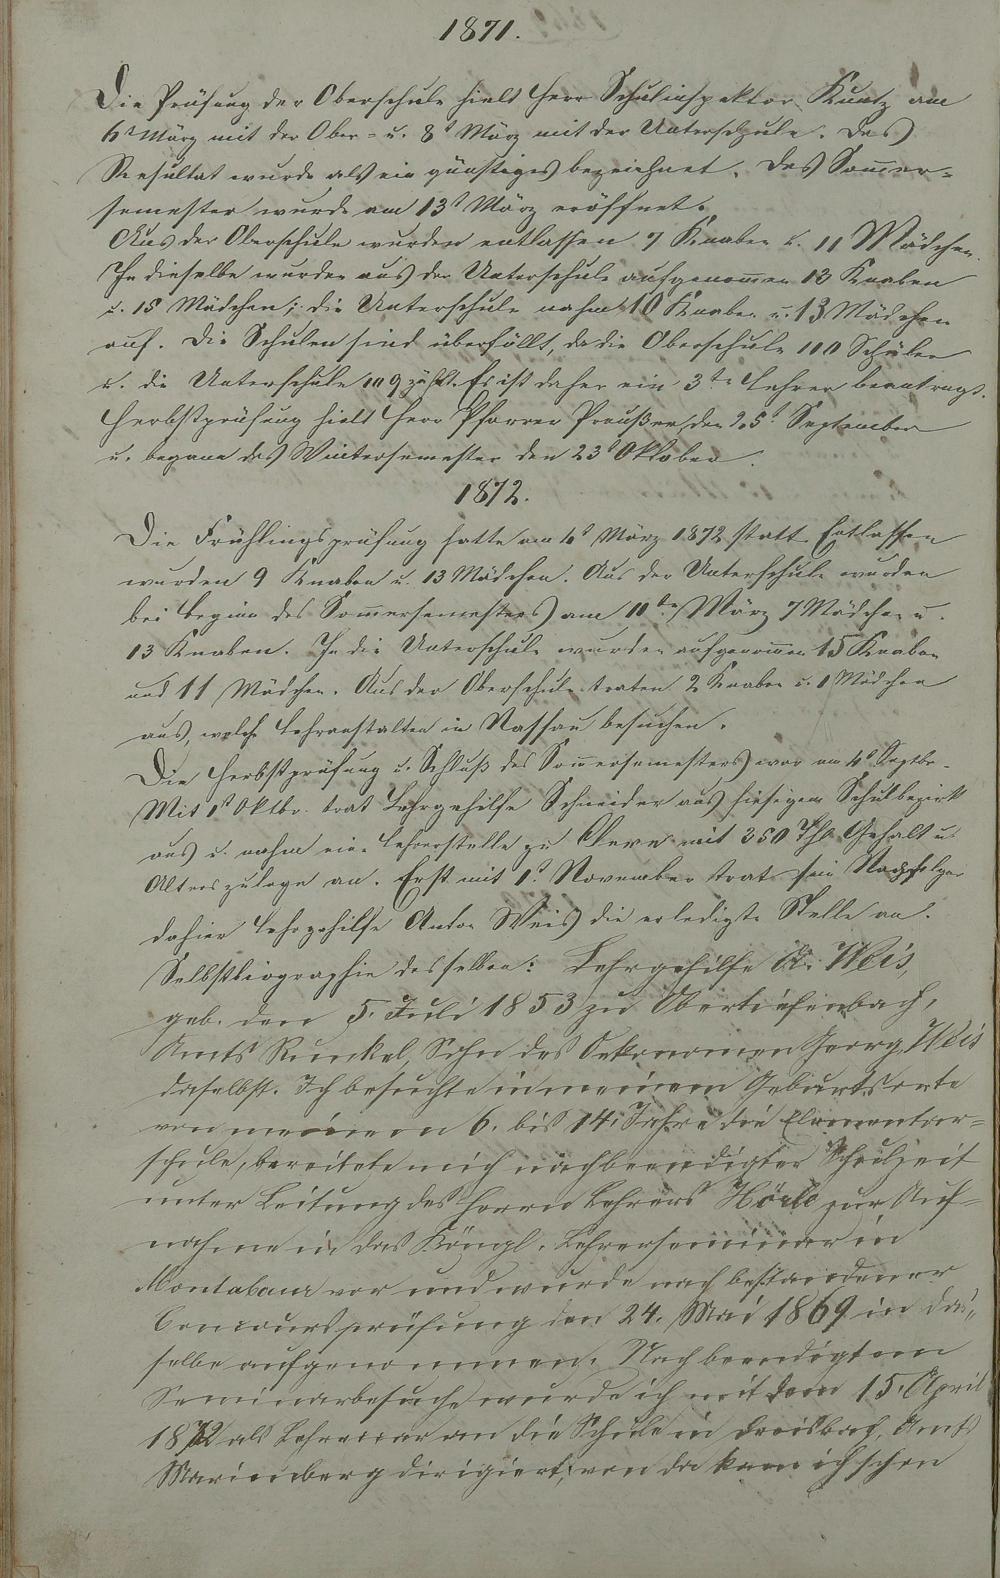 1871.
Die Prüfung der Oberschule hielt Herr Schulinspektor Kuntz am
6t März mit der Ober- u. 8t März mit der Unterschule. Das
Resultat wurde als ein günstiges bezeichnet. Das Somer-
semester wurde am 13t März eröffnet.
Aus der Oberschule wurden entlassen 7 Knaben u. 11 Mädchen.
In dieselbe wurden aus der Unterschule aufgenomen 13 Knaben
u. 15 Mädchen; die Unterschule nahm 10 Knaben u. 13 Mädchen
auf. Die Schulen sind überfüllt, da die Oberschule 110 Schüler
u. die Unterschule 109 zählt. Es ist daher ein 3ter Lehrer beantragt.
Herbstprüfung hielt Herr Pfarrer Preußer den 25t September
u. begann das Wintersemester den 23t Oktober.
1872.
Die Frühlingsprüfung hatte am 4t März 1872 statt. Entlassen
wurden 9 Knaben u. 13 Mädchen. Aus der Unterschule wurden
bei Beginn des Somersemesters am 11ten März 7 Mädchen u.
13 Knaben. In die Unterschule wurden aufgenomen 15 Knaben
und 11 Mädchen. Aus der Oberschule traten 2 Knaben u. 1 Mädchen
aus, welche Lehranstalten in Nassau besuchen.
Die Herbstprüfung u. Schluß des Somersemesters war am Septbr.
Mit 1t Oktbr. trat Lehrgehilfe Schneider aus hiesigem Schulbezirk
aus u. nahm eine Lehrerstelle zu Cleve mit 350 Thl Gehalt u.
Alterszulage an. Erst mit 1t November trat sein Nachfolger
dahier Lehrgehilfe Anton Weis die erledigte Stelle an.
Selbstbiographie desselben: Lehrgehilfe A. Weis,
geb. den 5. Juli 1853 zu Obertiefenbach,
Amts Runkel, Sohn des Oekonomen Georg Weis
daselbst. Ich besuchte in meinem Geburtsorte
von meinem 6. bis 14. Jahre die Elementar-
schule, bereitete mich nach beendigter Schulzeit
unter Leitung des Herrn Lehrers zur Auf-
nahme in das Köngl. Lehrerseminar in
Montabaur vor und wurde nach bestandener
Concoursprüfung den 24. Mai 1869 in das-
selbe aufgenommen. Nach beendigtem
Seminarbesuche wurde ich mit dem 15. April
1872 als Lehrer an die Schule in Dreisbach, Amts
Marienberg dirigiert; von da kam ich schon